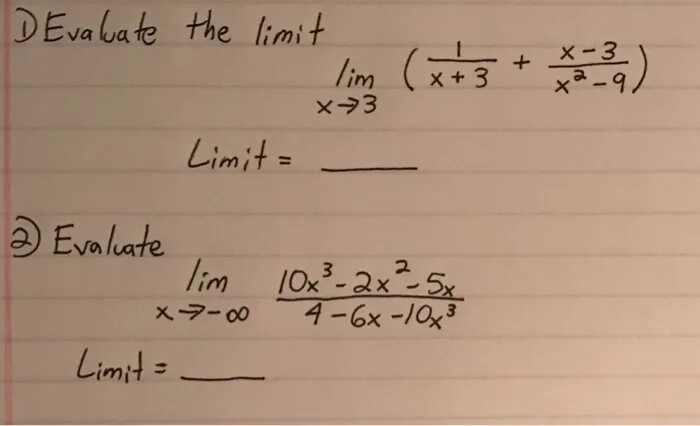 1) Evaluate the limit
lim x→3 (1/(x+3) + (x-3)/(x²-9))
Limit = ____
② Evaluate
lim x→-∞ (10x³-2x²-5x)/(4-6x-10x³)
Limit = ____